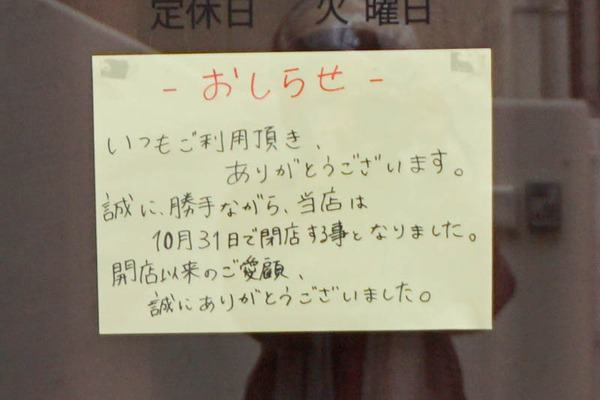 定休日 火曜日
- おしらせ -
いつもご利用頂き、
ありがとうございます。
誠に、勝手ながら、当店は
10月31日で閉店する事となりました。
開店以来のご愛顧、
誠にありがとうございました。